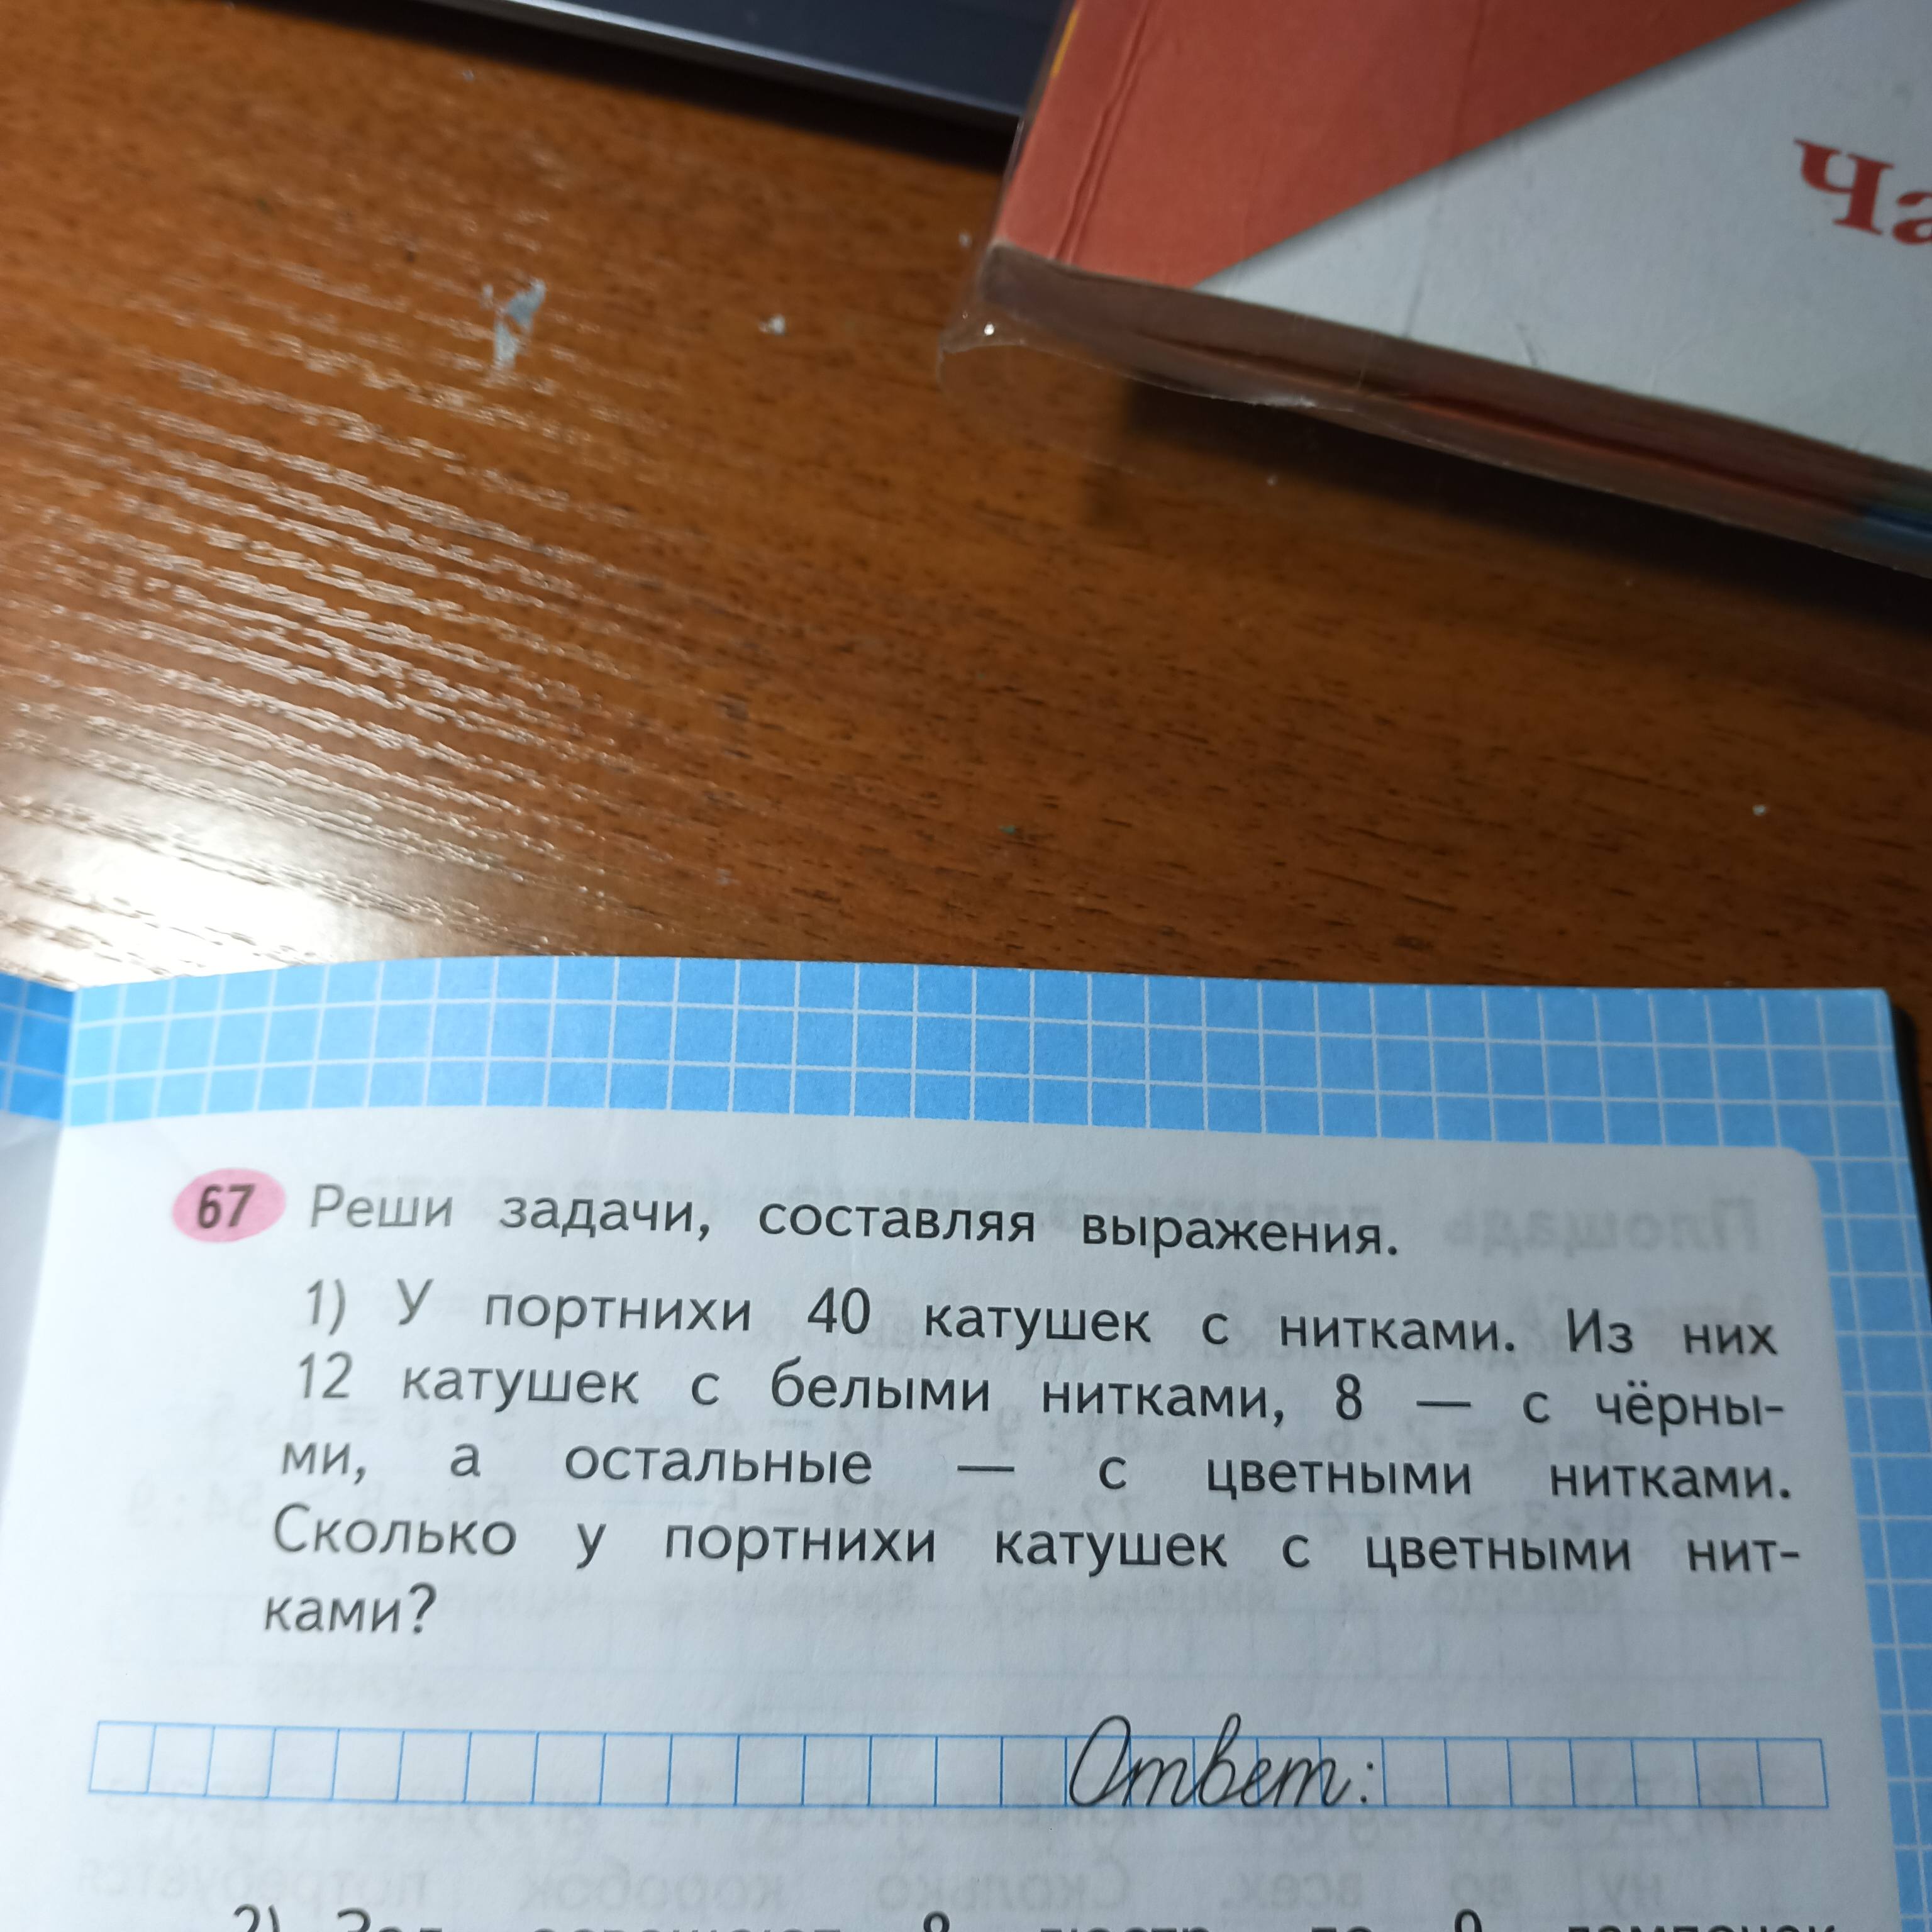 Ча
67 Реши задачи, составляя выражения.
1) У портнихи 40 катушек с нитками. Из них
12 катушек с белыми нитками, 8 — с чёрны-
ми, а остальные — с цветными нитками.
Сколько у портнихи катушек с цветными нит-
ками?
Ответ: